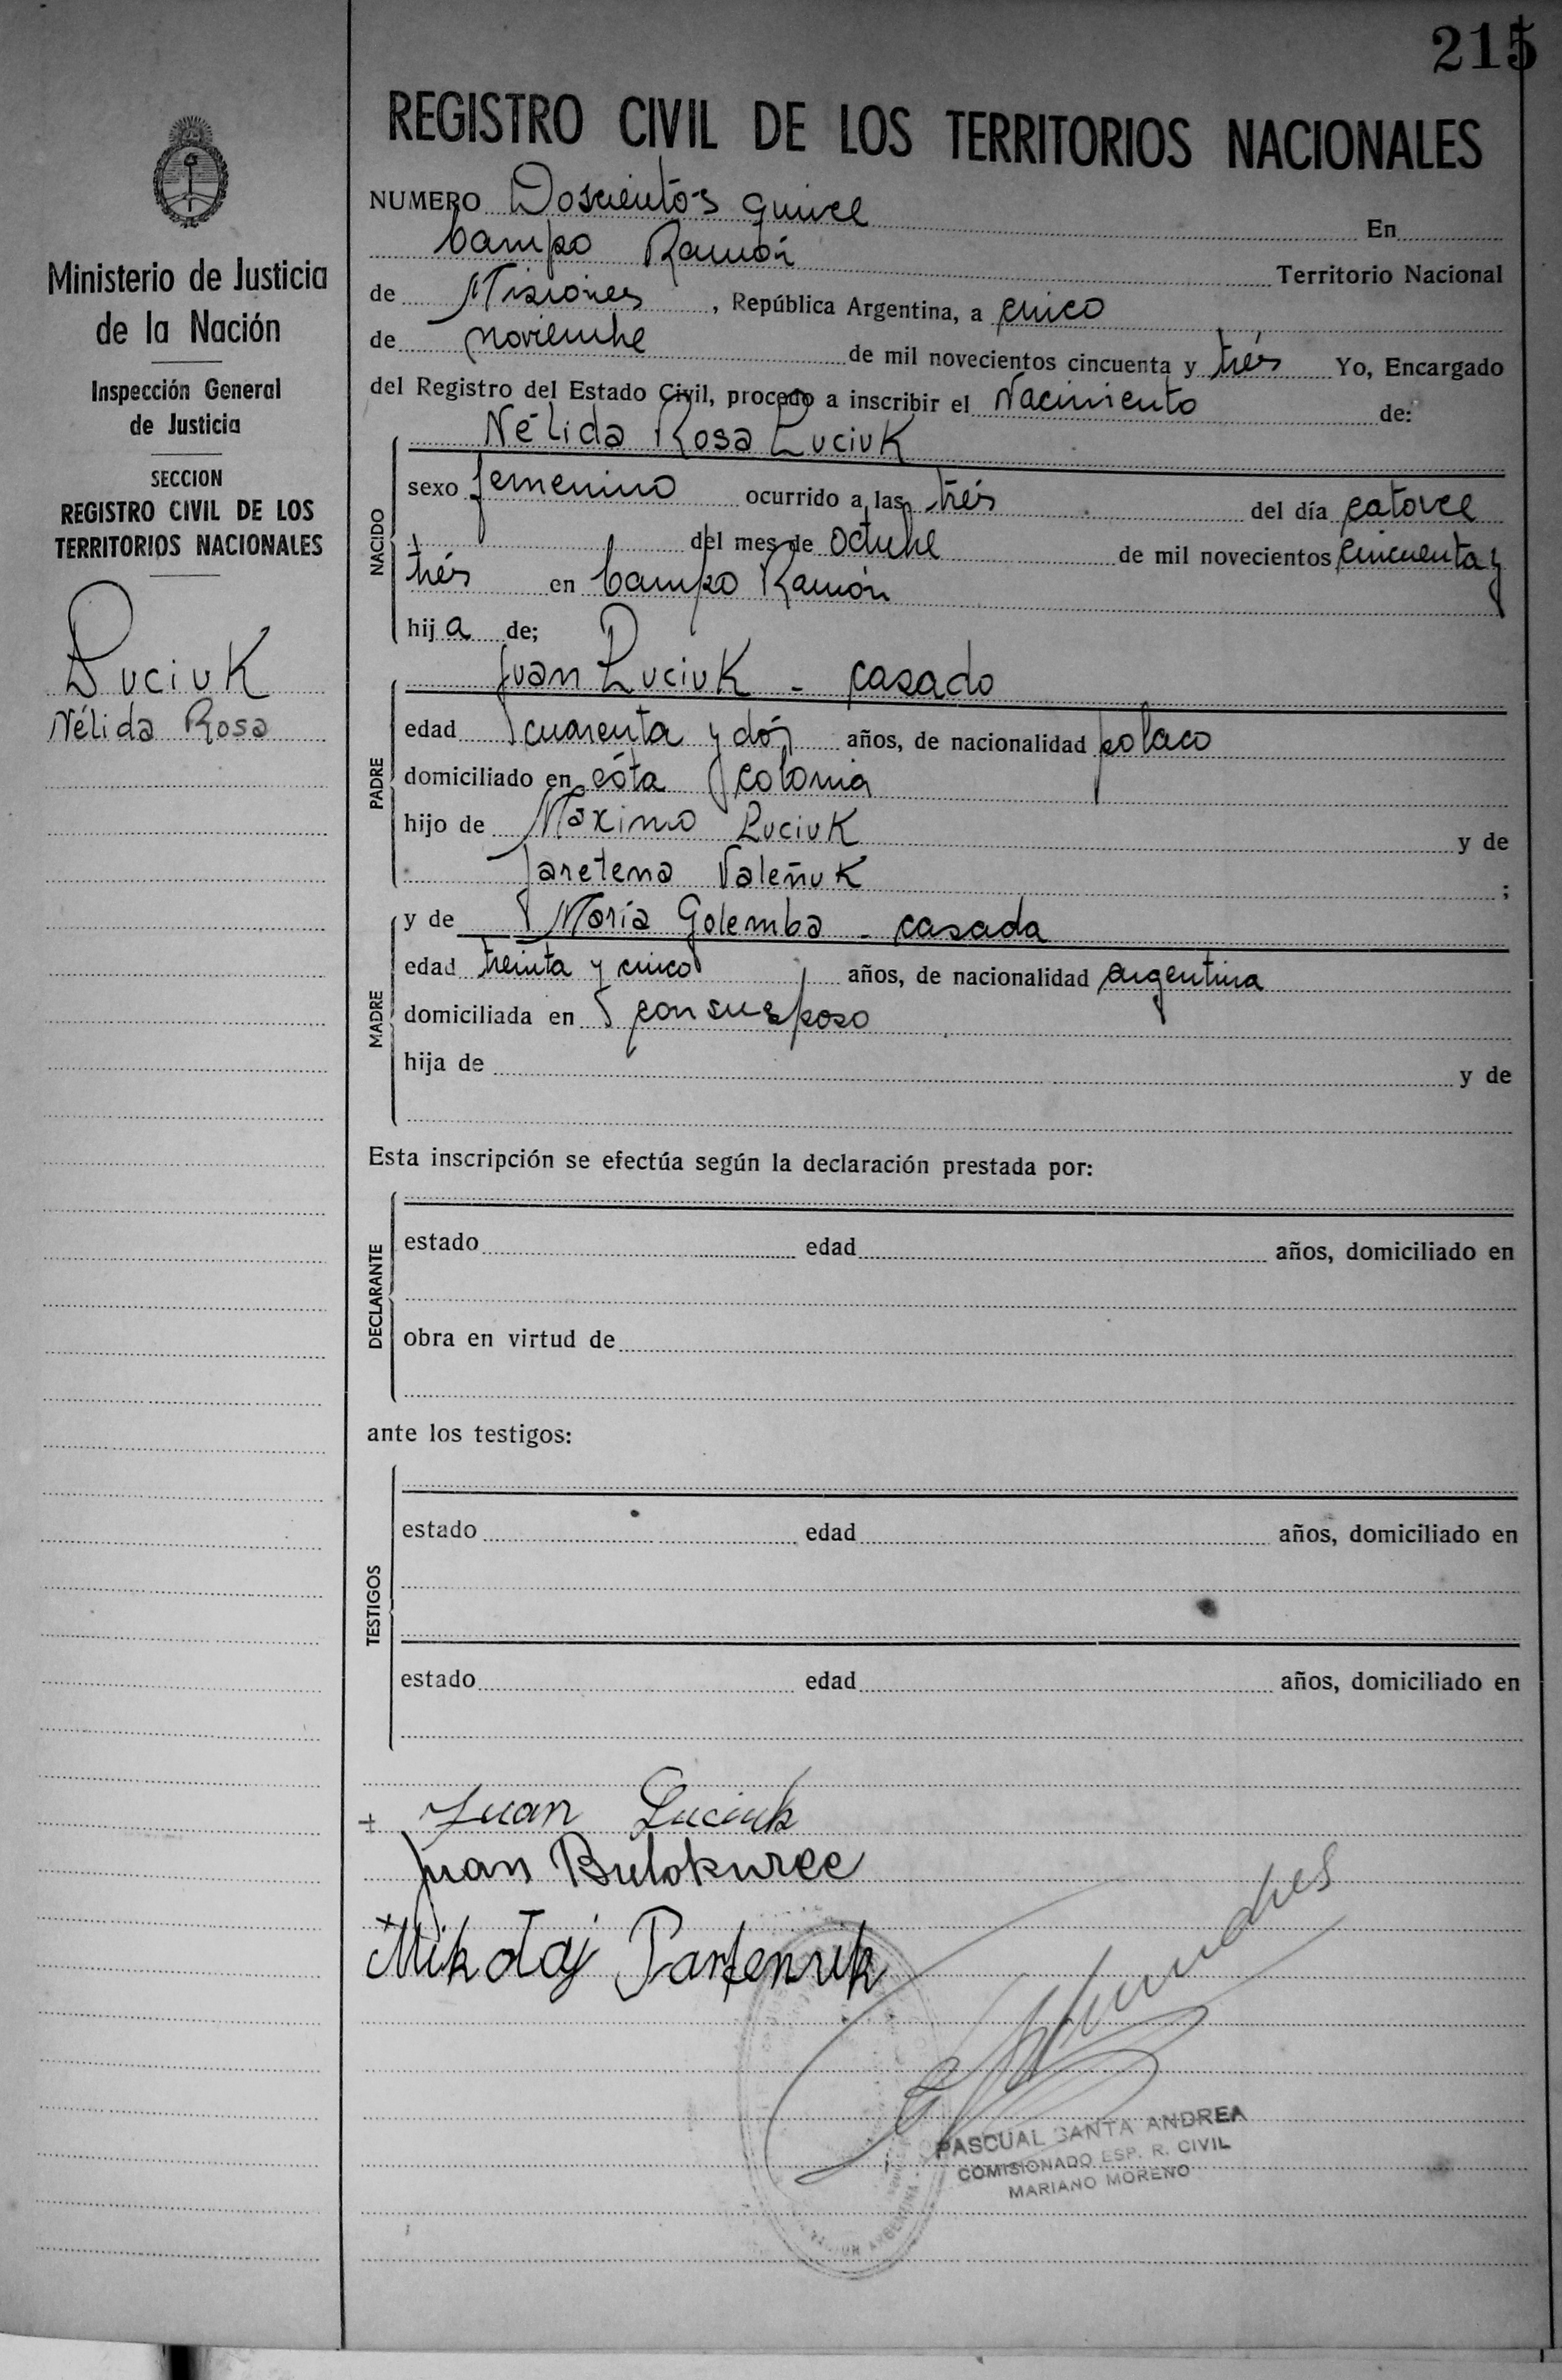 215
REGISTRO CIVIL DE LOS TERRITORIOS NACIONALES
Ministerio de Justicia
de la Nación
Inspección General
de Justicia
SECCION
REGISTRO CIVIL DE LOS
TERRITORIOS NACIONALES
Luciuk
Nélida Rosa
NUMERO Doscientos quince En
Campo Ramón Territorio Nacional
de Misiones, República Argentina, a cinco
de noviembre de mil novecientos cincuenta y trés Yo, Encargado
del Registro del Estado Civil, procedo a inscribir el Nacimiento de:
NACIDO
Nélida Rosa Luciuk
sexo femenino ocurrido a las trés del día catorce
del mes de octubre de mil novecientos cincuenta y
trés en Campo Ramón
hija de;
PADRE
Juan Luciuk - casado
edad cuarenta y dós años, de nacionalidad polaco
domiciliado en ésta colonia
hijo de Máximo Luciuk y de
Jaretena Valeñuk ;
MADRE
y de María Golemba - casada
edad treinta y cinco años, de nacionalidad argentina
domiciliada en con su esposo
hija de y de
Esta inscripción se efectúa según la declaración prestada por:
DECLARANTE
estado edad años, domiciliado en
obra en virtud de
ante los testigos:
TESTIGOS
estado edad años, domiciliado en
estado edad años, domiciliado en
Juan Luciuk
Juan Bulokuree
Mikołaj Parfeniuk
PASCUAL SANTA ANDREA
COMISIONADO ESP. R. CIVIL
MARIANO MORENO